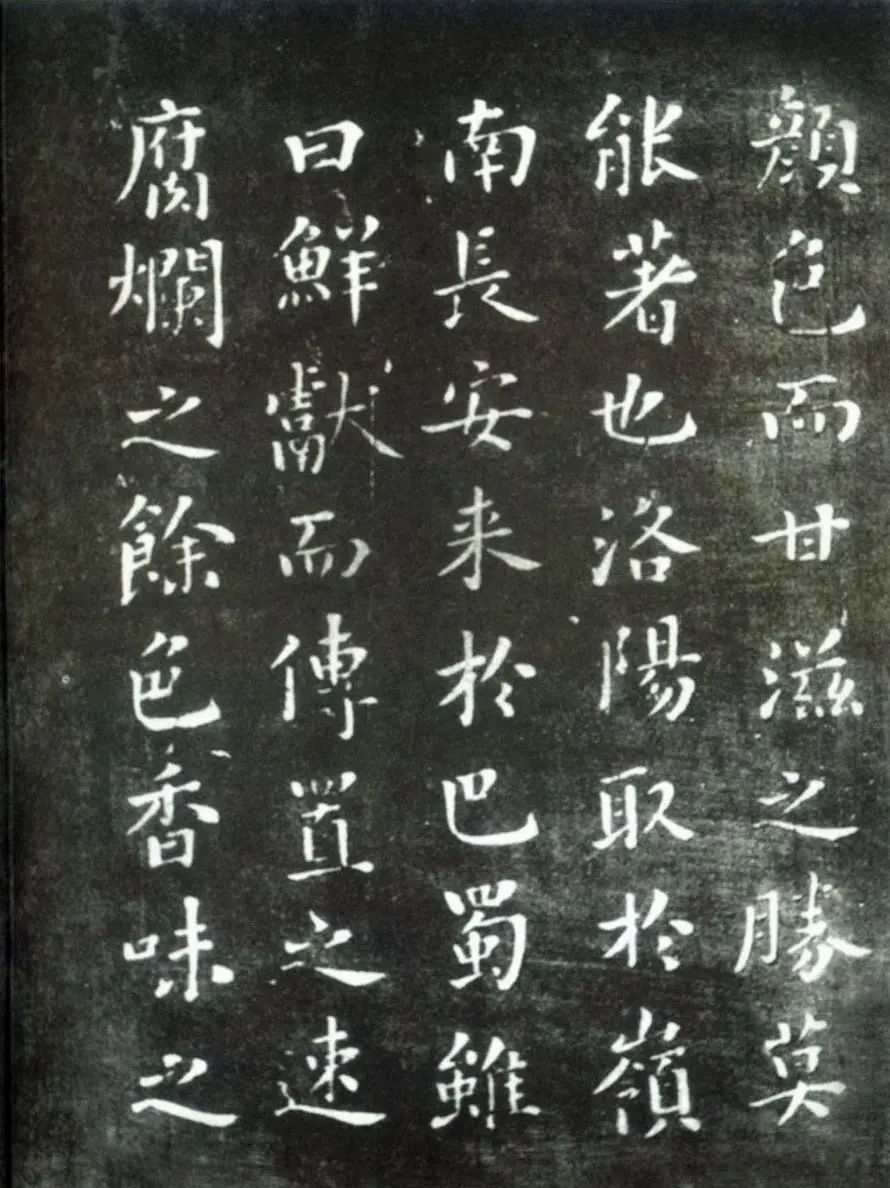 顔色而甘滋之勝莫
能著也洛陽取於嶺
南長安来於巴蜀雖
曰鮮獻而傳置之速
腐爛之餘色香味之